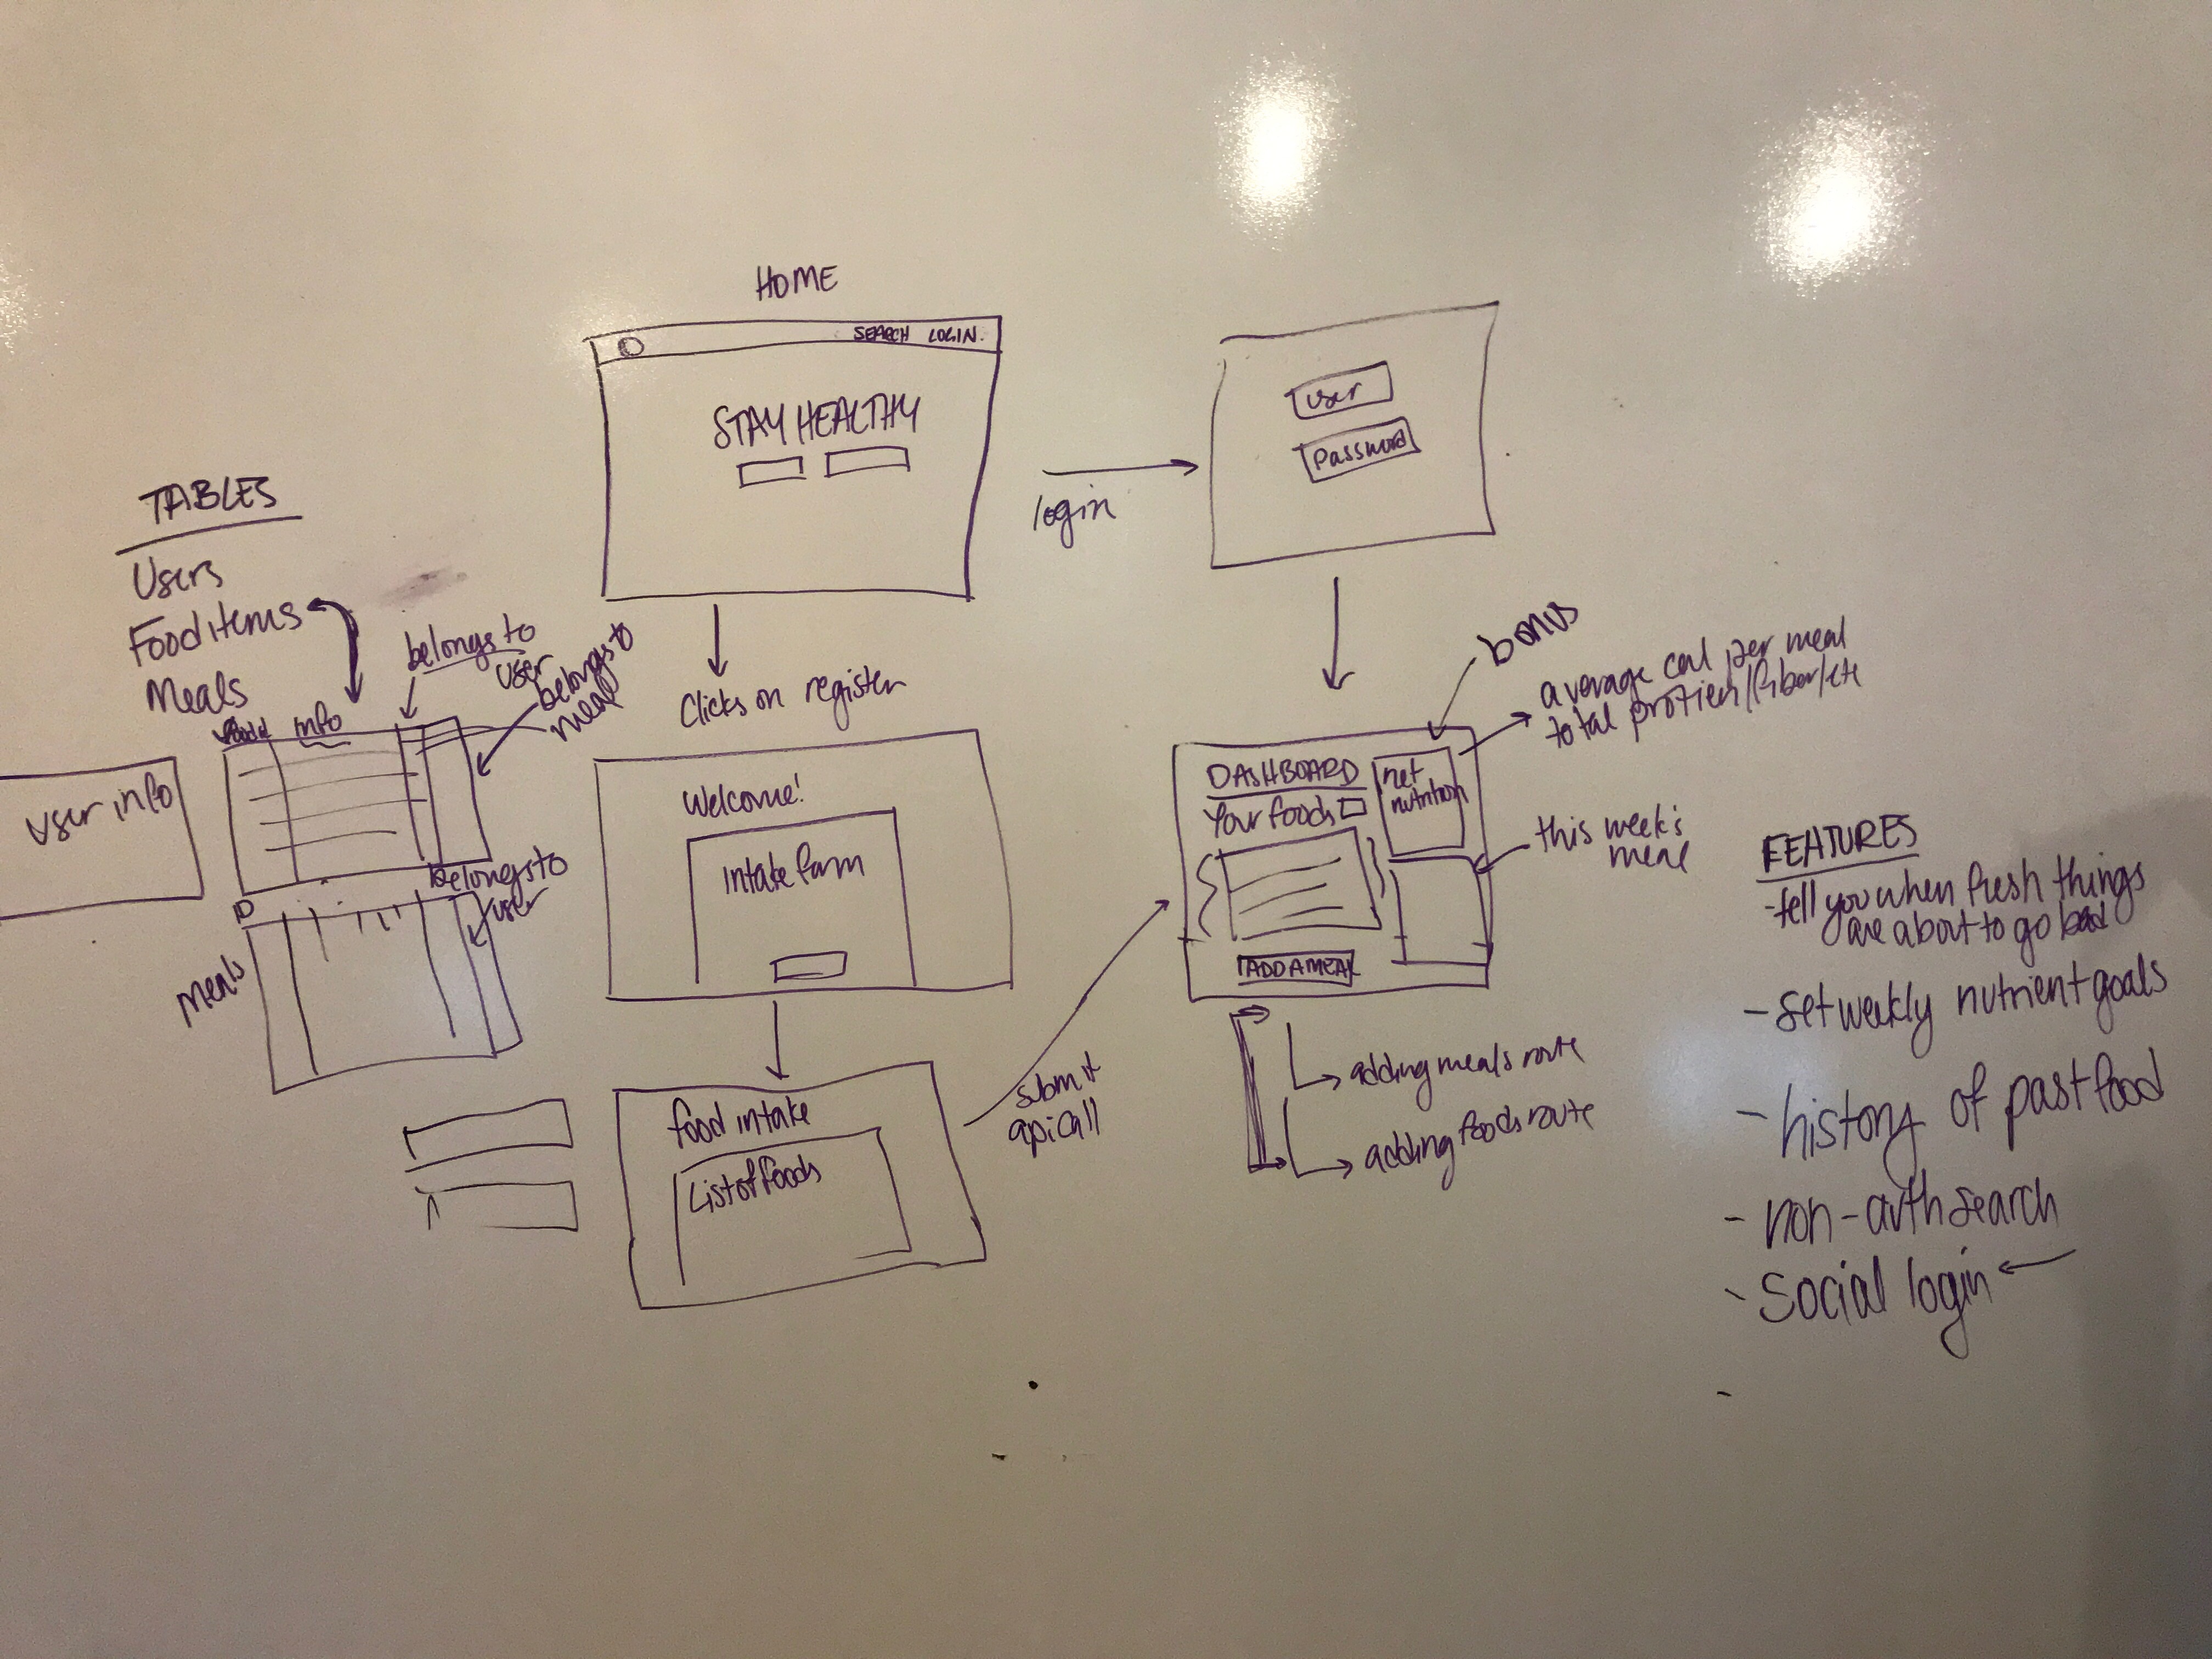 HOME
SEARCH LOGIN.
STAY HEALTHY
login
user
password
TABLES
Users
Food items
Meals
belongs to
user
belongs to
meal
info
user info
belongs to
user
ID
meals
Clicks on register
Welcome!
Intake form
food intake
List of foods
submit
api call
bonus
average cal per meal
total protien/fiber/etc
DASHBOARD
Your foods
net
nutrition
this week's
meal
ADD A MEAL
adding meals route
adding foods route
FEATURES
- tell you when fresh things
are about to go bad
- set weekly nutrient goals
- history of past food
- non-auth search
- social login